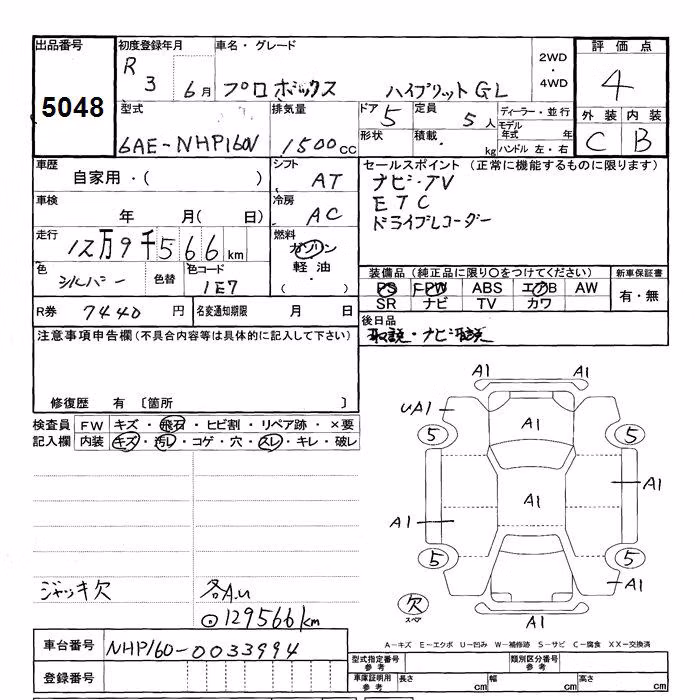 出品番号 5048
初度登録年月 R 3 6月
車名・グレード プロボックス ハイブリットGL
2WD・4WD
評価点 4
型式 6AE-NHP160V
排気量 1500cc
ドア 5
定員 5人
形状
積載 kg
ディーラー・並行
モデル年式 年
ハンドル 左・右
外装 内装
C B
車歴 自家用・( )
シフト AT
車検 年 月( 日)
冷房 AC
走行 12万9千566km
燃料 ガソリン 軽油・( )
色 シルバー 色替 色コード 1E7
R券 7440円 名変通知期限 月 日
セールスポイント (正常に機能するものに限ります)
ナビ・TV
ETC
ドライブレコーダー
装備品 (純正品に限り○をつけてください) 新車保証書
PS FPW ABS エアB AW 有・無
SR ナビ TV カワ
後日品
取説・ナビ取説
注意事項申告欄 (不具合内容等は具体的に記入して下さい)
修復歴 有 〔箇所 〕
検査員 FW キズ・飛石・ヒビ割・リペア跡・×要
記入欄 内装 キズ・汚レ・コゲ・穴・スレ・キレ・破レ
A1 A1
UA1 A1
5 5
A1
A1
A1
5 5
A1
欠 スペア
A1
ジャッキ欠 各A.U
⊙129566km
A-キズ E-エクボ U-凹み W-補修跡 S-サビ C-腐食 XX-交換済
車台番号 NHP160-0033994
登録番号
型式指定番号 参考 類別区分番号 参考
車庫証明用 参考 長さ cm 幅 cm 高さ cm